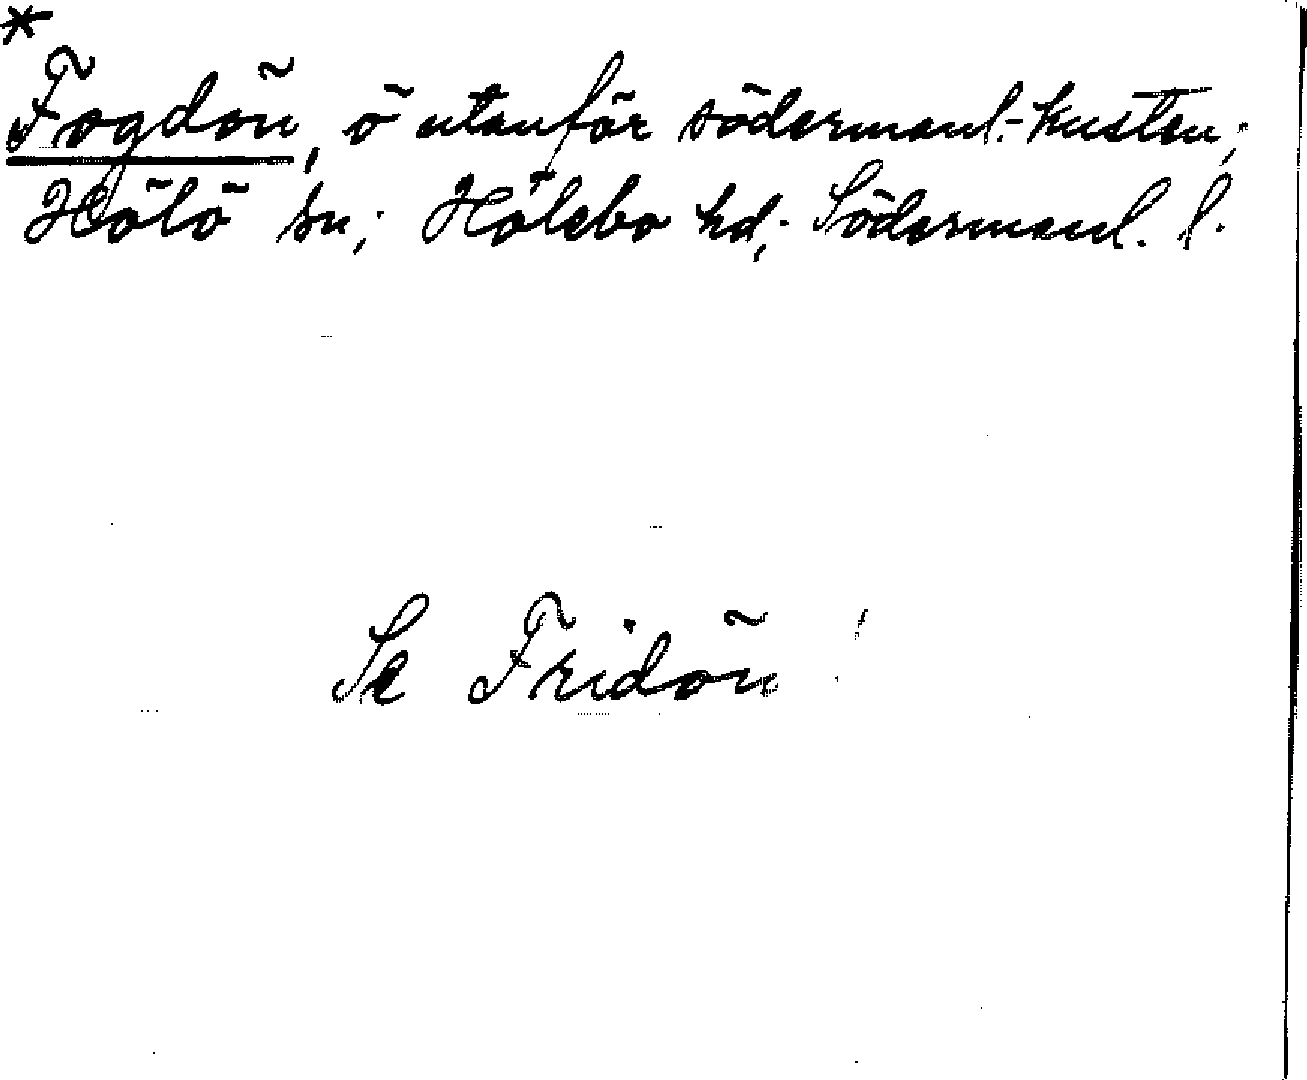 *
Fogdön, ö utanför södermanl.-kusten;
Hölö sn; Hölebo hd; Södermanl. l.
Se Fridön!